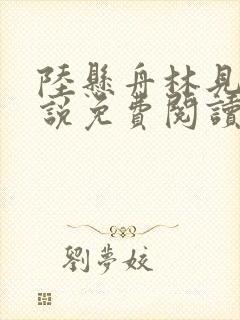 陸懸舟林見
說免費閱讀
劉夢姣